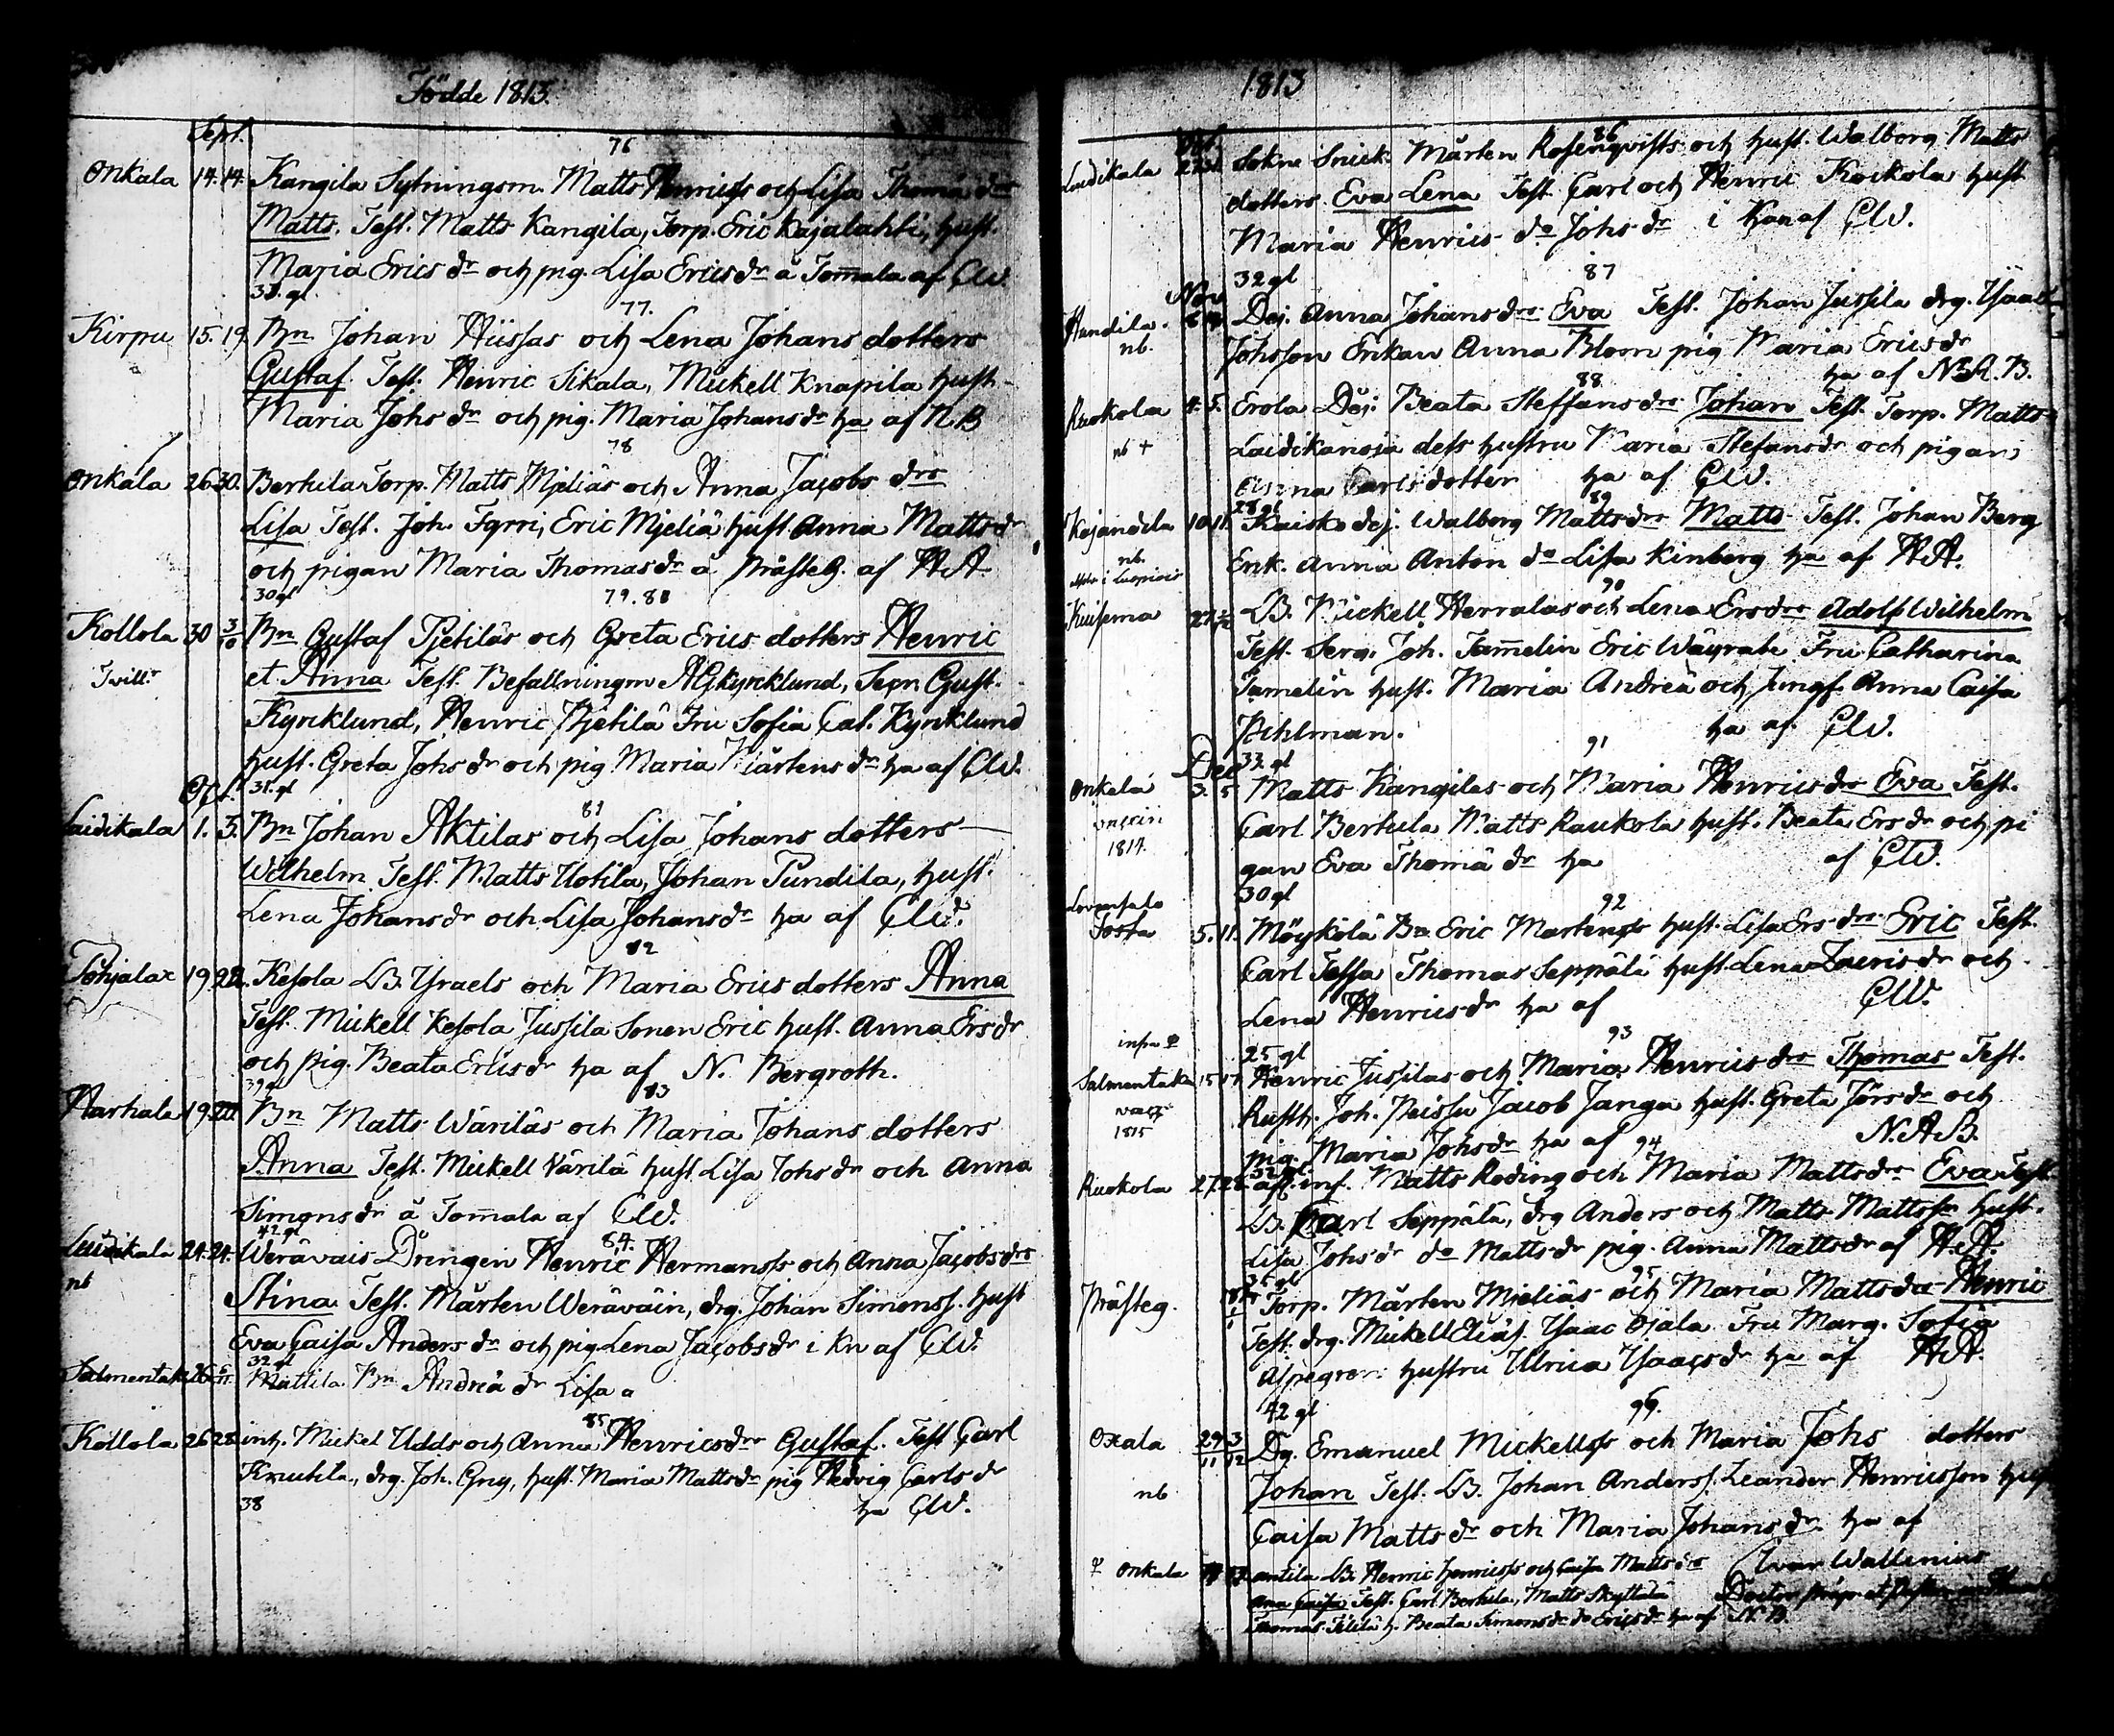 Födde 1813.
Sept.
76
Onkala 14. 14. Kangila Sytningsm. Matts Henricss och Lisa Thomä drs
Matts. Test. Matts Kangila, Torp. Eric Kajalahti, hust.
Maria Erics dr och pig. Lisa Ericsdr å Tom̅ala af CW.
77.
Kirpu 15. 19. Bn Johan Hiissas och Lena Johans dotters
Gustaf. Test. Henric Sikala, Mickell Knapila hust.
Maria Johs dr och pig. Maria Johans dr ha af NB
78
Onkala 26. 30. Berhila Torp. Matts Mjeliäs och Anna Jacobs drs
Lisa Test. Joh. Fyrri, Eric Mjeliä hust Anna Matts dr
och pigan Maria Thomas dr å PrästeG. af HA
30 gl 79. 80
Kollola 30 3/10 Bn Gustaf Pjetiläs och Greta Erics dotters Henric
Twill.r et Anna Test. Befallningm AGKyrcklund, Secr. Gust.
Kyrcklund, Henric Pjetilä Fru Sofia Cat. Kyrcklund
hust. Greta Johs dr och pig. Maria Mårtens dr ha af CW.
Oct. 31. gl 81
Laidikala 1. 3. Bn Johan Aktilas och Lisa Johans dotters
Wilhelm Test. Matts Uotila, Johan Pundila, hust.
Lena Johans dr och Lisa Johans dr ha af CW.
82
Pohjala 19 22. Kesola LB. Ysraels och Maria Erics dotters Anna
Test. Mickell Kesola Jussila Sonen Eric hust. Anna Ers dr
och pig. Beata Ericsdr ha af N. Bergroth.
39 gl 83
Harhala 19. Bn Matts Wäriläs och Maria Johans dotters
Anna Test. Mickell Värilä hust Lisa Johs dr och Anna
Simons dr å Tom̅ala af CW.
42 gl 84.
Laidikala 24. 24. Weräväis Drengen Henric Hermanss och Anna Jacobs drs
nb Stina Test. Mårten Weräväin, drg. Johan Simonss. hust
Eva Caisa Anders dr och pig Lena Jacobs dr i Kn af CW.
32 gl
Salmentaka 26 Mattila Bn Andreä dr Lisa a
85
Kollola 26 28 inh. Mickel Udds och Anna Henrics drs Gustaf. Test Carl
Knutila, drg. Joh. Gry, hust. Maria Matts dr pig Hedvig Carls dr
38 ha CW.
1813
Oct. 86
Laidikala Sokne Snick. Mårten Rosenqvists och hust. Walborg Matts
dotters Eva Lena Test. Carl och Henric Kockola hust
Maria Henrics do Johs dr i Kan af CW.
32 gl 87
Nov
Hundila. Dej. Anna Johans drs Eva Test. Johan Jussila drg. Ysaac
nb. Johsson Enkan Anna Blom pig Maria Erics dr
ha af N.A.B.
88
Ruokola 4. 5. Erola Dej. Beata Steffans drs Johan Test. Torp. Matts
nb + Laidikanoja dess hustru Maria Stefans dr och pigan
Anna Carls dotter ha af CW.
28 gl 89
Kajandila 10. 11. Kaisko dej. Walborg Matts drs Matts Test. Johan Berg
nb. Enk. Anna Anton do Lisa Kinberg ha af HA.
90
Kuisema 27. LB. Mickell Herralas och Lena Ersdrs Adolf Wilhelm
Test. Serg. Joh. Tam̅elin Eric Wäyrabe Fru Catharina
Tamelin hust. Maria Andreä och Jungf. Anna Caisa
Pihlman. ha af CW.
33 gl 91
Dec
Onkala 3. 5 Matts Kangilas och Maria Henrics drs Eva Test.
Carl Berhula Matts Raukola hust. Beata Ers dr och pi
1814. gan Eva Thomä dr ha af CW.
30 gl 92
Sosta 5. 11. Möykölä Bn Eric Martenss hust. Lisa Ers drs Eric Test.
Carl Jessa Thomas Seppälä hust Lena Zacris dr och
Lena Henrics dr ha af CW.
infra
25 gl 93
Salmentaka 15 17 Henric Jussilas och Maria Henrics drs Thomas Test.
vacc Rusth. Joh. Neissu Jacob Janga hust. Greta Jörs dr och
1815 pig. Maria Johs dr ha af N.A.B.
94
Ruokola 27. 28. afsk. inf. Matts Roding och Maria Matts drs Eva Test
LB. Carl Seppälä, drg Anders och Matts Mattss. hust.
Lisa Johs dr do Matts dr pig. Anna Matts dr af HA.
35 gl 95
Prästeg. Torp. Mårten Mjeliäs och Maria Matts drs Henric
Test. drg. Mickell Eliäs. Ysaac Ojala Fru Marg. Sofia
Alpegren hustru Ulrica Ysaacs dr ha af HA.
42 gl 96.
Oxala 29/11 3/12 Dg. Emanuel Mickellss och Maria Johs dotters
nb Johan Test. LB. Johan Anderss. Leander Henricsson hust
Caisa Matts dr och Maria Johans dr. ha af
Onkala antila LB. Henric Henricss och Caisa Matts drs Ivar Wallenius
Ana Caisa Test. Carl Berhila, Matts Skyttälä
Thomas Tililä h. Beata Simons dr do Erics dr ha af N.B.